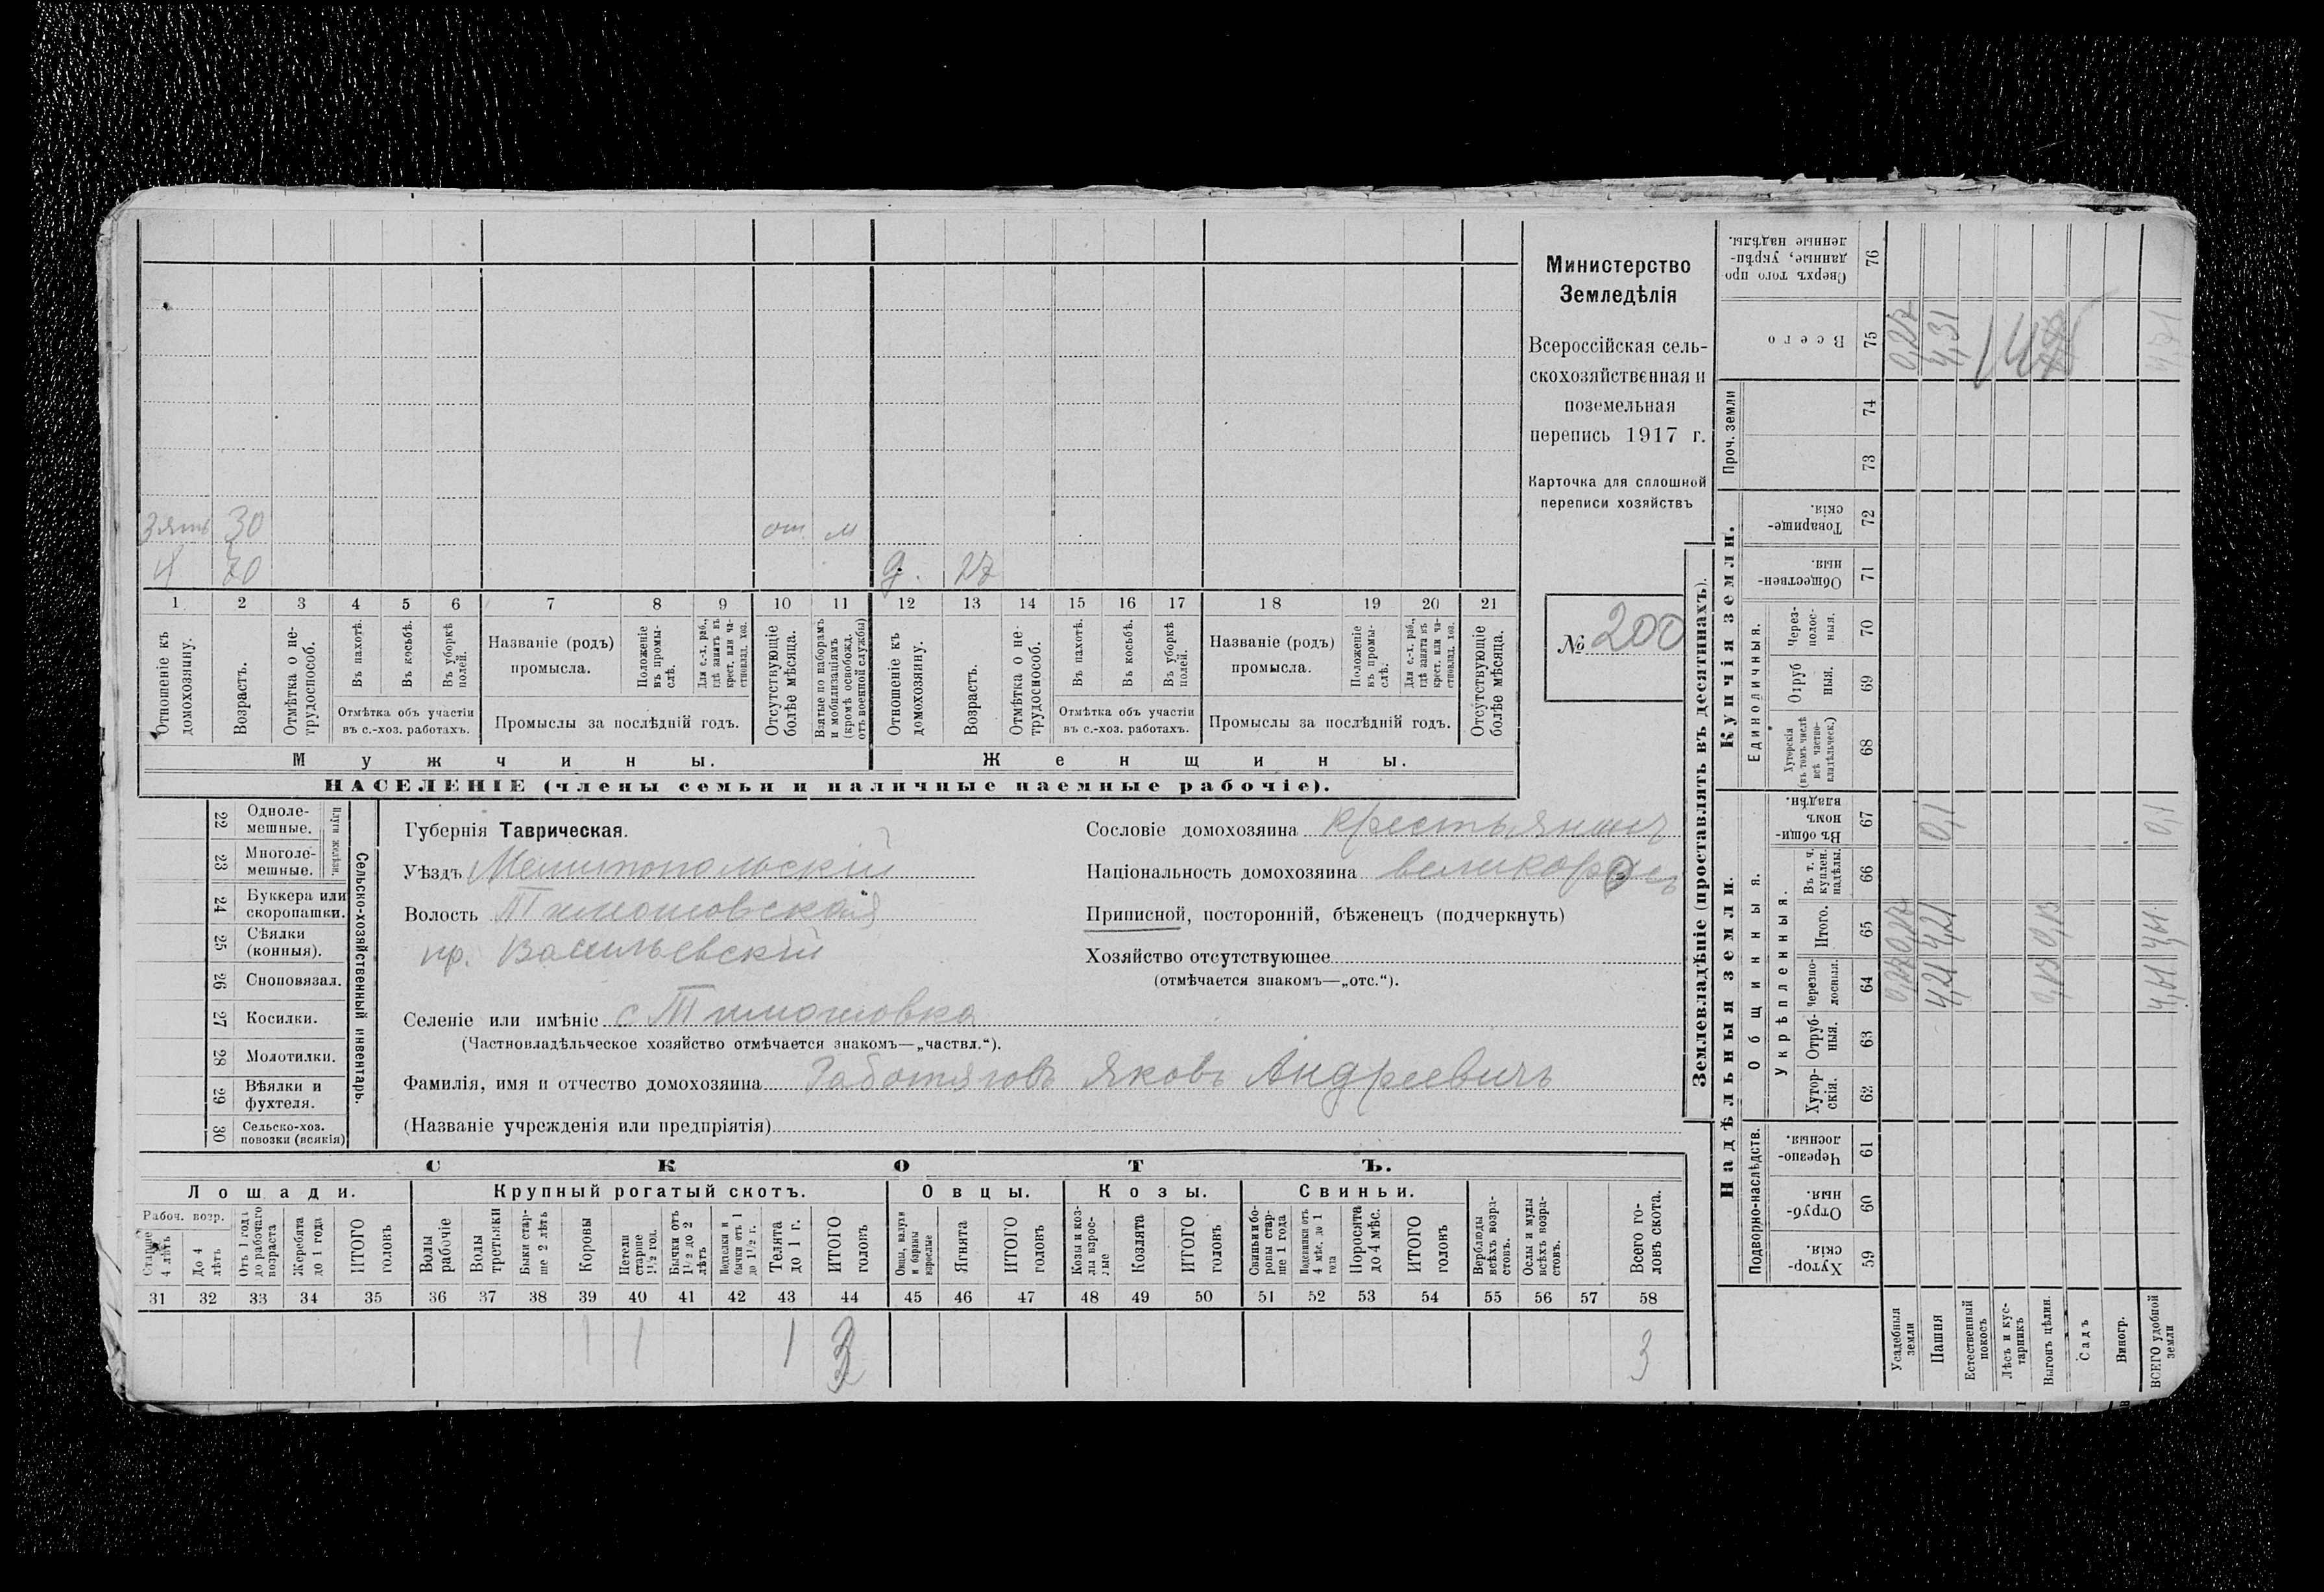 Министерство
Земледѣлія
Всероссійская сель-
скохозяйственная и
поземельная
перепись 1917 г.
Карточка для сплошной
переписи хозяйствъ
№ 200
зять 30 от м
70 д. 27
1 2 3 4 5 6 7 8 9 10 11 12 13 14 15 16 17 18 19 20 21
Отношеніе къ домохозяину.
Возрастъ.
Отмѣтка о не-трудоспособ.
Въ пахотѣ.
Въ косьбѣ.
Въ уборкѣ полей.
Отмѣтка объ участіи
въ с.-хоз. работахъ.
Названіе (родъ)
промысла.
Положеніе въ промы-слѣ.
Для с.-х. раб., гдѣ занятъ въ крест. или ча-стновлад. хоз.
Промыслы за послѣдній годъ.
Отсутствующіе болѣе мѣсяца.
Взятые по наборамъ и мобилизаціямъ (кромѣ освобожд. отъ военной службы)
Отношеніе къ домохозяину.
Возрастъ.
Отмѣтка о не-трудоспособ.
Въ пахотѣ.
Въ косьбѣ.
Въ уборкѣ полей.
Отмѣтка объ участіи
въ с.-хоз. работахъ.
Названіе (родъ)
промысла.
Положеніе въ промы-слѣ.
Для с.-х. раб., гдѣ занята въ крест. или ча-стновлад. хоз.
Промыслы за послѣдній годъ.
Отсутствующіе болѣе мѣсяца.
Мужчины. Женщины.
НАСЕЛЕНІЕ (члены семьи и наличные наемные рабочіе).
22 Одноле-мешные.
23 Многоле-мешные.
Плуги желѣзн.
24 Буккера или скоропашки.
25 Сѣялки (конныя).
26 Сноповязал.
27 Косилки.
28 Молотилки.
29 Вѣялки и фухтеля.
30 Сельско-хоз. повозки (всякія)
Сельско-хозяйственный инвентарь.
Губернія Таврическая.
Уѣздъ Мелитопольскій
Волость Тимошовская
пр. Васильевскій
Селеніе или имѣніе с Тимошовка
(Частновладѣльческое хозяйство отмѣчается знакомъ—„частвл.“).
Фамилія, имя и отчество домохозяина Работяговъ Яковъ Андреевичъ
(Названіе учрежденія или предпріятія)
Сословіе домохозяина крестьянинъ
Національность домохозяина
Приписной, посторонній, бѣженецъ (подчеркнуть)
Хозяйство отсутствующее
(отмѣчается знакомъ—„отс.“).
СКОТЪ.
Лошади. Крупный рогатый скотъ. Овцы. Козы. Свиньи.
Рабоч. возр.
Старше 4 лѣтъ
До 4 лѣтъ
Отъ 1 года до рабочаго возраста
Жеребята до 1 года
ИТОГО головъ
Волы рабочіе
Волы третьяки
Быки стар-ше 2 лѣтъ
Коровы
Нетели старше 1½ год.
Бычки отъ 1½ до 2 лѣтъ
Подтелки и бычки отъ 1 до 1½ г.
Телята до 1 г.
ИТОГО головъ
Овцы, валухи и бараны взрослые
Ягнята
ИТОГО головъ
Козы и коз-лы взрос-лые
Козлята
ИТОГО головъ
Свиньи и бо-ровы стар-ше 1 года
Подсвинки отъ 4 мѣс. до 1 года
Поросята до 4 мѣс.
ИТОГО головъ
Верблюды всѣхъ возра-стовъ.
Ослы и мулы всѣхъ возра-стовъ.
Всего го-ловъ скота.
31 32 33 34 35 36 37 38 39 40 41 42 43 44 45 46 47 48 49 50 51 52 53 54 55 56 57 58
1 1 1 3 3
Землевладѣніе (проставлять въ десятинахъ).
Надѣльныя земли. Купчія земли. Проч. земли
Подворно-наслѣдств.
Общинныя.
Укрѣпленныя.
Единоличныя.
Хутор-скія. 59
Отруб-ныя. 60
Черезпо-лосныя. 61
Хутор-скія. 62
Отруб-ныя. 63
Черезпо-лосныя. 64
Итого. 65
Въ т. ч. куплен. надѣлы. 66
Въ общин-номъ владѣн. 67
Хуторскія (въ томъ числѣ всѣ частно-владѣльческ.) 68
Отруб-ныя. 69
Через-полос-ныя. 70
Обществен-ныя. 71
Товарище-скія. 72
73
74
Всего 75
Сверхъ того про-данные, укрѣп-ленные надѣлы. 76
Усадебныя земли 0,27 0,27
Пашня 4,21 4,21 0,1 4,31
Естественный покосъ
Лѣсъ и кус-тарникъ
Выгонъ цѣлин. 0,13 0,13
Садъ
Виногр.
ВСЕГО удобной земли 4,61 4,61 0,1 4,71